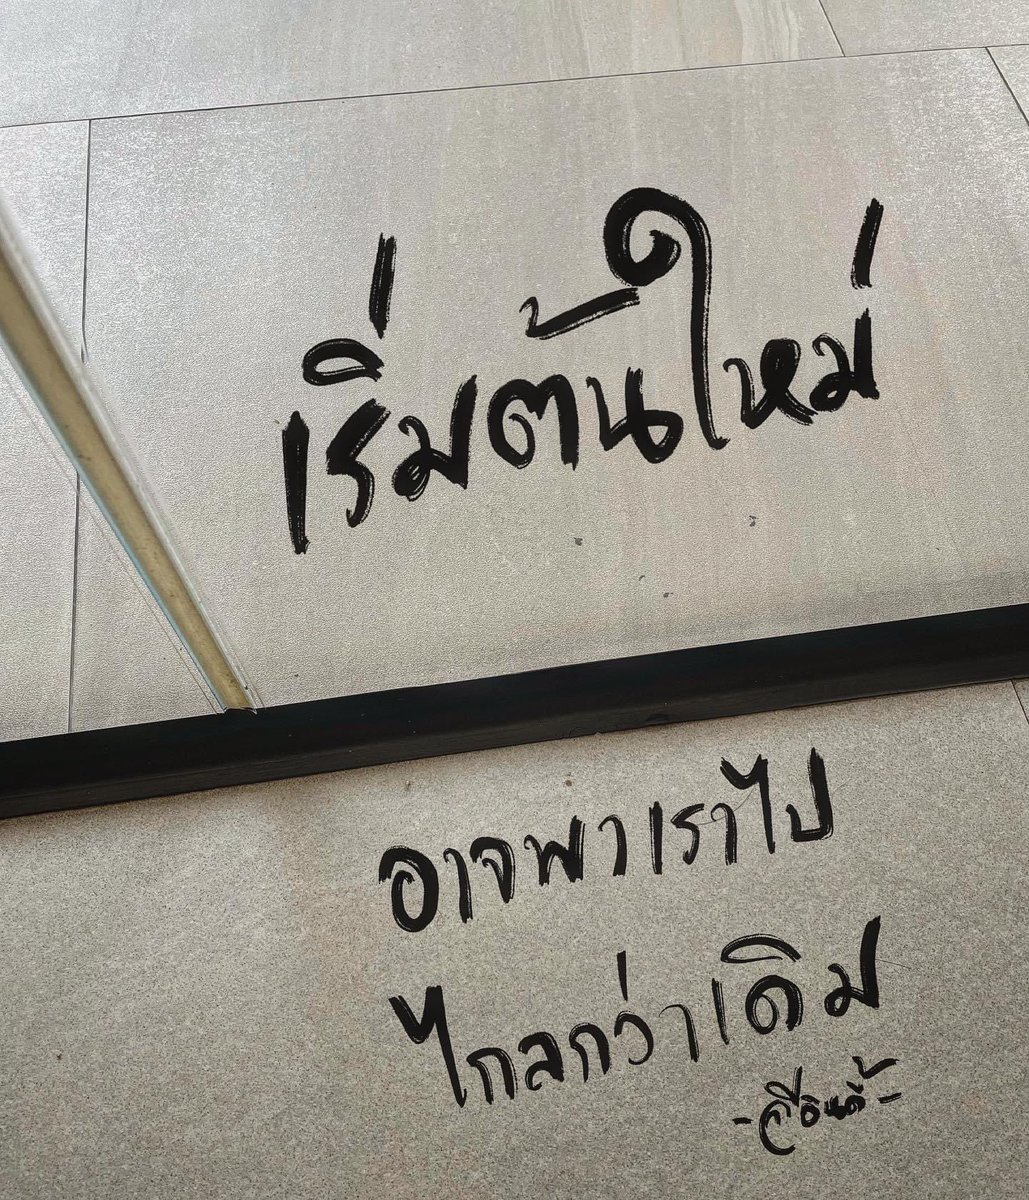 เริ่มต้นใหม่
อาจพาเราไป
ไกลกว่าเดิม